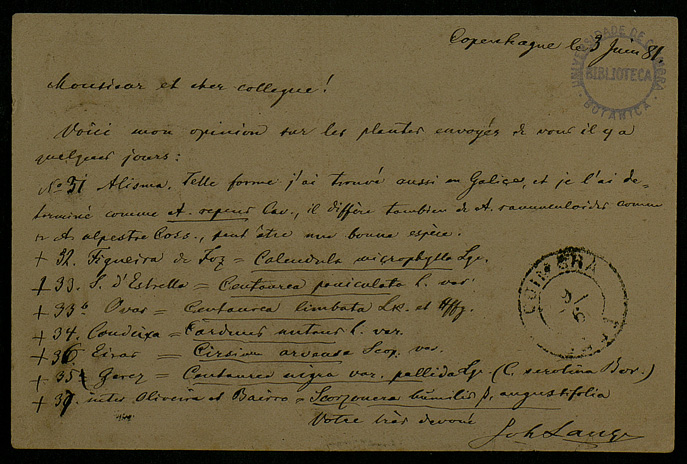 Copenhague le 3 Juin 81.
UNIVERSIDADE DE COIMBRA
BIBLIOTECA
BOTANICA
Monsieur et cher collegue!
Voici mon opinion sur les plantes envoyés de vous il y a
quelques jours:
No 31 Alisma. Telle forme j'ai trouvé aussi en Galice, et je l'ai de-
terminé comme A. repens Cav., il diffère tambien de A. ranunculoides comme
A. alpestre Coss., peut être une bonne espèce.
+ 32. Figueira de Foz = Calendula microphylla Lge.
+ 33. S. d'Estrella = Centaurea paniculata L. var.
+ 33b Ovar = Centaurea limbata Lk. et Hffg.
+ 34. Condeixa = Carduus nutans L. var.
+ 36 Eiras = Cirsium arvense Scop. var.
+ 35 Gerez = Centaurea nigra var. pallida Lge (C. serotina Bor.)
+ 37. inter Oliveira et Bairro = Scorzonera humilis β, angustifolia
Votre très devoué
Joh Lange
COIMBRA